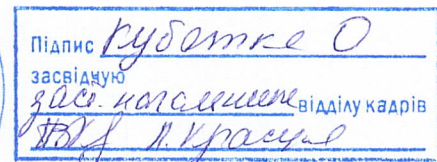 Підпис Кубатко О
засвідчую
заст. начальника відділу кадрів
ВК Л. Красуля